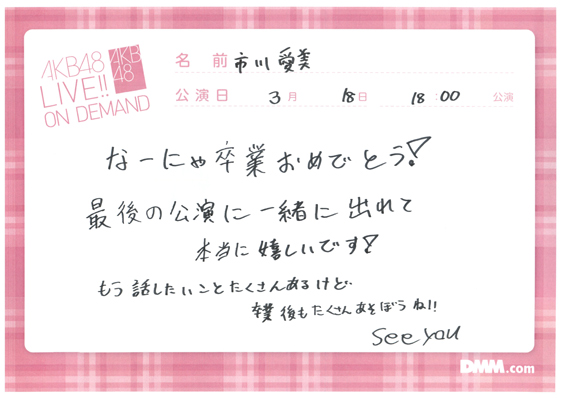 AKB48
LIVE!!
ON DEMAND
AKB
48
名 前 市川愛美
公演日 3月 18日 18:00 公演
なーにゃ卒業おめでとう!
最後の公演に一緒に出れて
本当に嬉しいです!
もう話したいことたくさんあるけど
卒業後もたくさんあそぼうね!!
See you
DMM.com